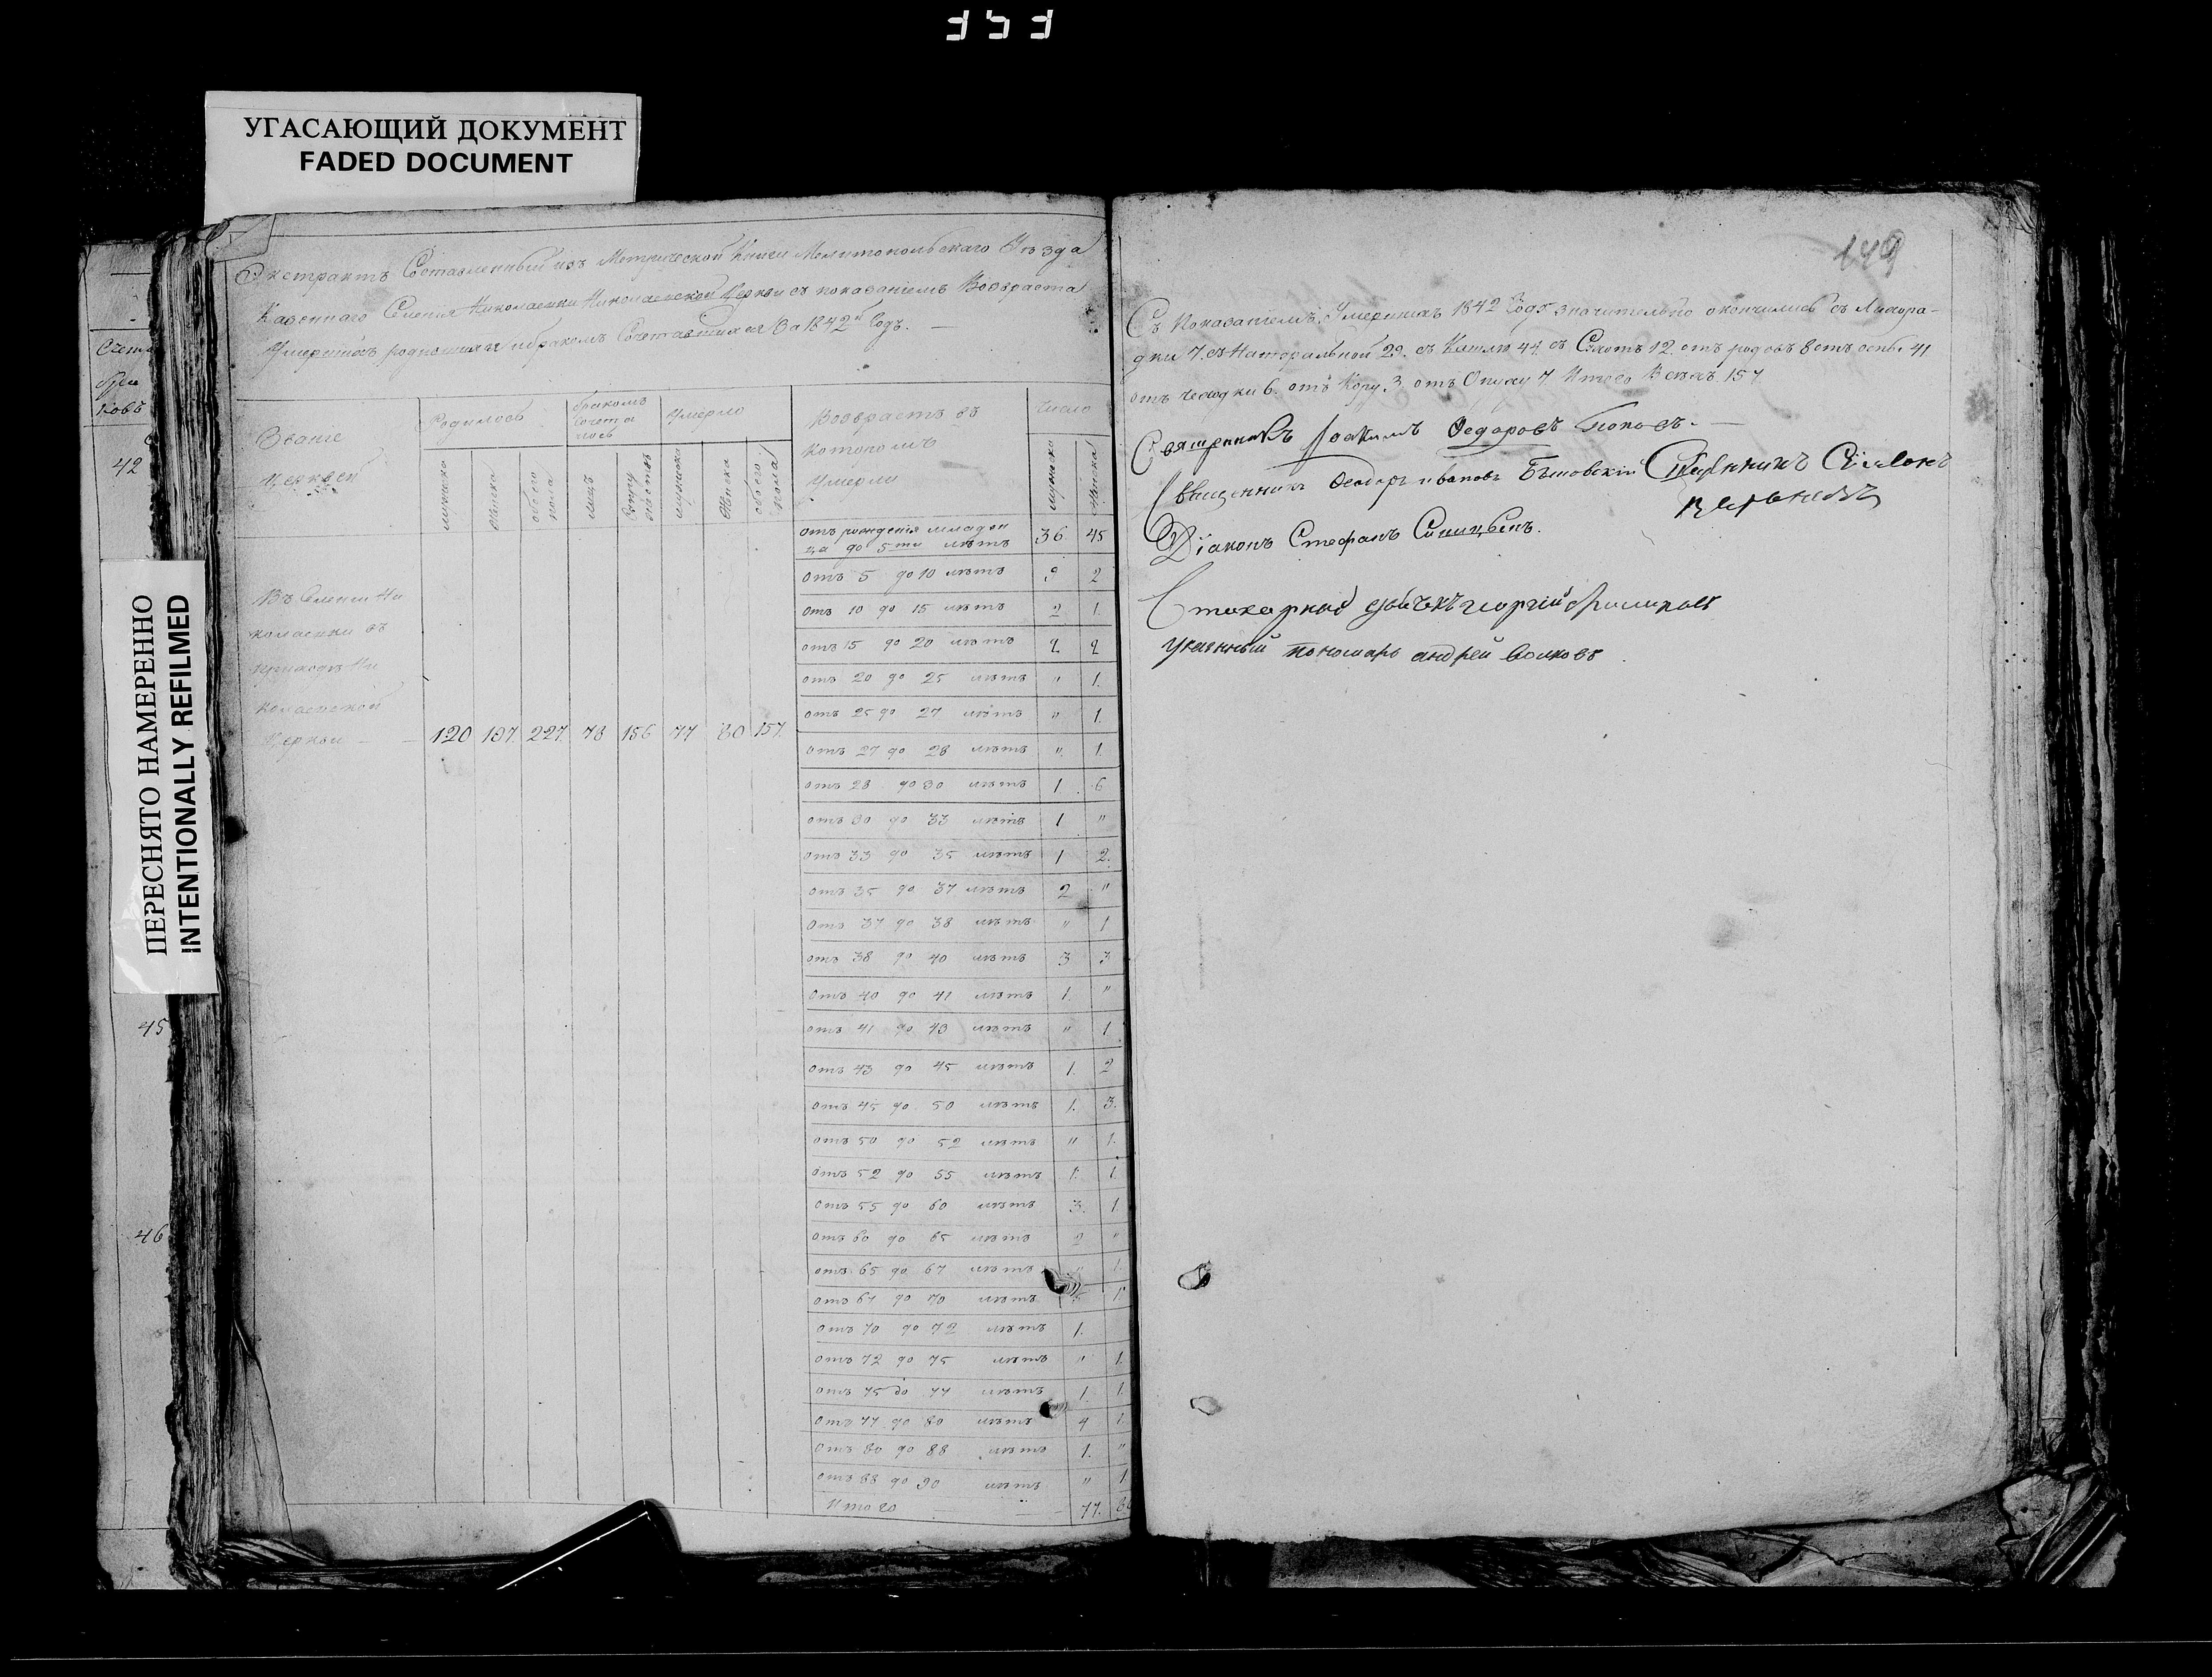 УГАСАЮЩИЙ ДОКУМЕНТ
FADED DOCUMENT
ПЕРЕСНЯТО НАМЕРЕННО
INTENTIONALLY REFILMED
42
45
46
Экстрактъ Составленный изъ Метрической Книги Мелитопольскаго Уѣзда
Казеннаго Селенія Николаевки Николаевской Церкви съ показаніемъ Возраста
Умершихъ родившихся и бракомъ Сочетавшихся За 1842й Годъ.
Званіе
Церквей
Родилось
бракомъ
Сочета
лось
Умерло
Возрастъ въ
котономъ
Умерли
Число
мужска
женска
обоего
пола
лицъ
мужска
женска
обоего
пола
мужска
женска
Въ Селеніи Ни
колаевки въ
приходѣ Ни
колаевской
Церкви
120 107. 227. 78 156 77 80 157.
отъ рожденія младен
ца до 5ти лѣтъ 36. 45
отъ 5 до 10 лѣтъ 9 2
отъ 10 до 15 лѣтъ 2 1.
отъ 15 до 20 лѣтъ 2 2
отъ 20 до 25 лѣтъ " 1.
отъ 25 до 27 лѣтъ " 1.
отъ 27 до 28 лѣтъ " 1.
отъ 28 до 30 лѣтъ 1. 6
отъ 30 до 33 лѣтъ 1. "
отъ 33 до 35 лѣтъ 1 2.
отъ 35 до 37 лѣтъ 2 "
отъ 37 до 38 лѣтъ " 1
отъ 38 до 40 лѣтъ 3 3
отъ 40 до 41 лѣтъ 1. "
отъ 41 до 43 лѣтъ " 1
отъ 43 до 45 лѣтъ 1. 2
отъ 45 до 50 лѣтъ 1. 3.
отъ 50 до 52 лѣтъ " 1.
отъ 52 до 55 лѣтъ 1. 1
отъ 55 до 60 лѣтъ 3. 1.
отъ 60 до 65 лѣтъ 2 "
отъ 65 до 67 лѣтъ " 1
отъ 67 до 70 лѣтъ 1.
отъ 70 до 72 лѣтъ 1.
отъ 72 до 75 лѣтъ " 1.
отъ 75 до 77 лѣтъ 1. 1.
отъ 77 до 80 лѣтъ 4 1.
отъ 80 до 88 лѣтъ 1. "
отъ 88 до 90 лѣтъ " 1
Итого 77.
149
Съ Показаніемъ Умершихъ 1842 Годъ значительно окончились съ Лихора-
дки 7. съ Наторальной 29. съ Кашлю 44. съ 12. отъ родовъ 8 отъ оспы 41
отъ чеходки 6. отъ Кору. 3. отъ Опуху 7. Итого Всѣхъ. 157
Священникъ Іоакимъ Федоровъ Поповъ.
Священникъ Феодоръ Ивановъ
Діаконъ Стефанъ Синицынъ.
Стихарный Георгій
Указный пономарь андрей Волковъ